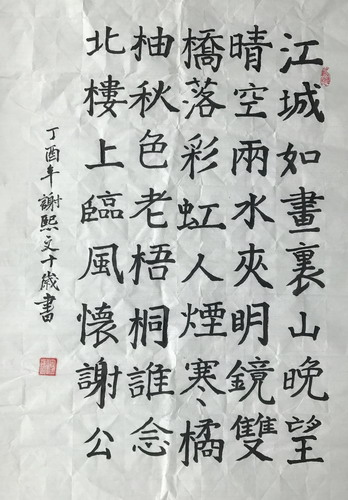 江城如畫裏山晚望
晴空兩水夾明鏡雙
橋落彩虹人煙寒橘
柚秋色老梧桐誰念
北樓上臨風懷謝公
丁酉年謝熙文十歲書